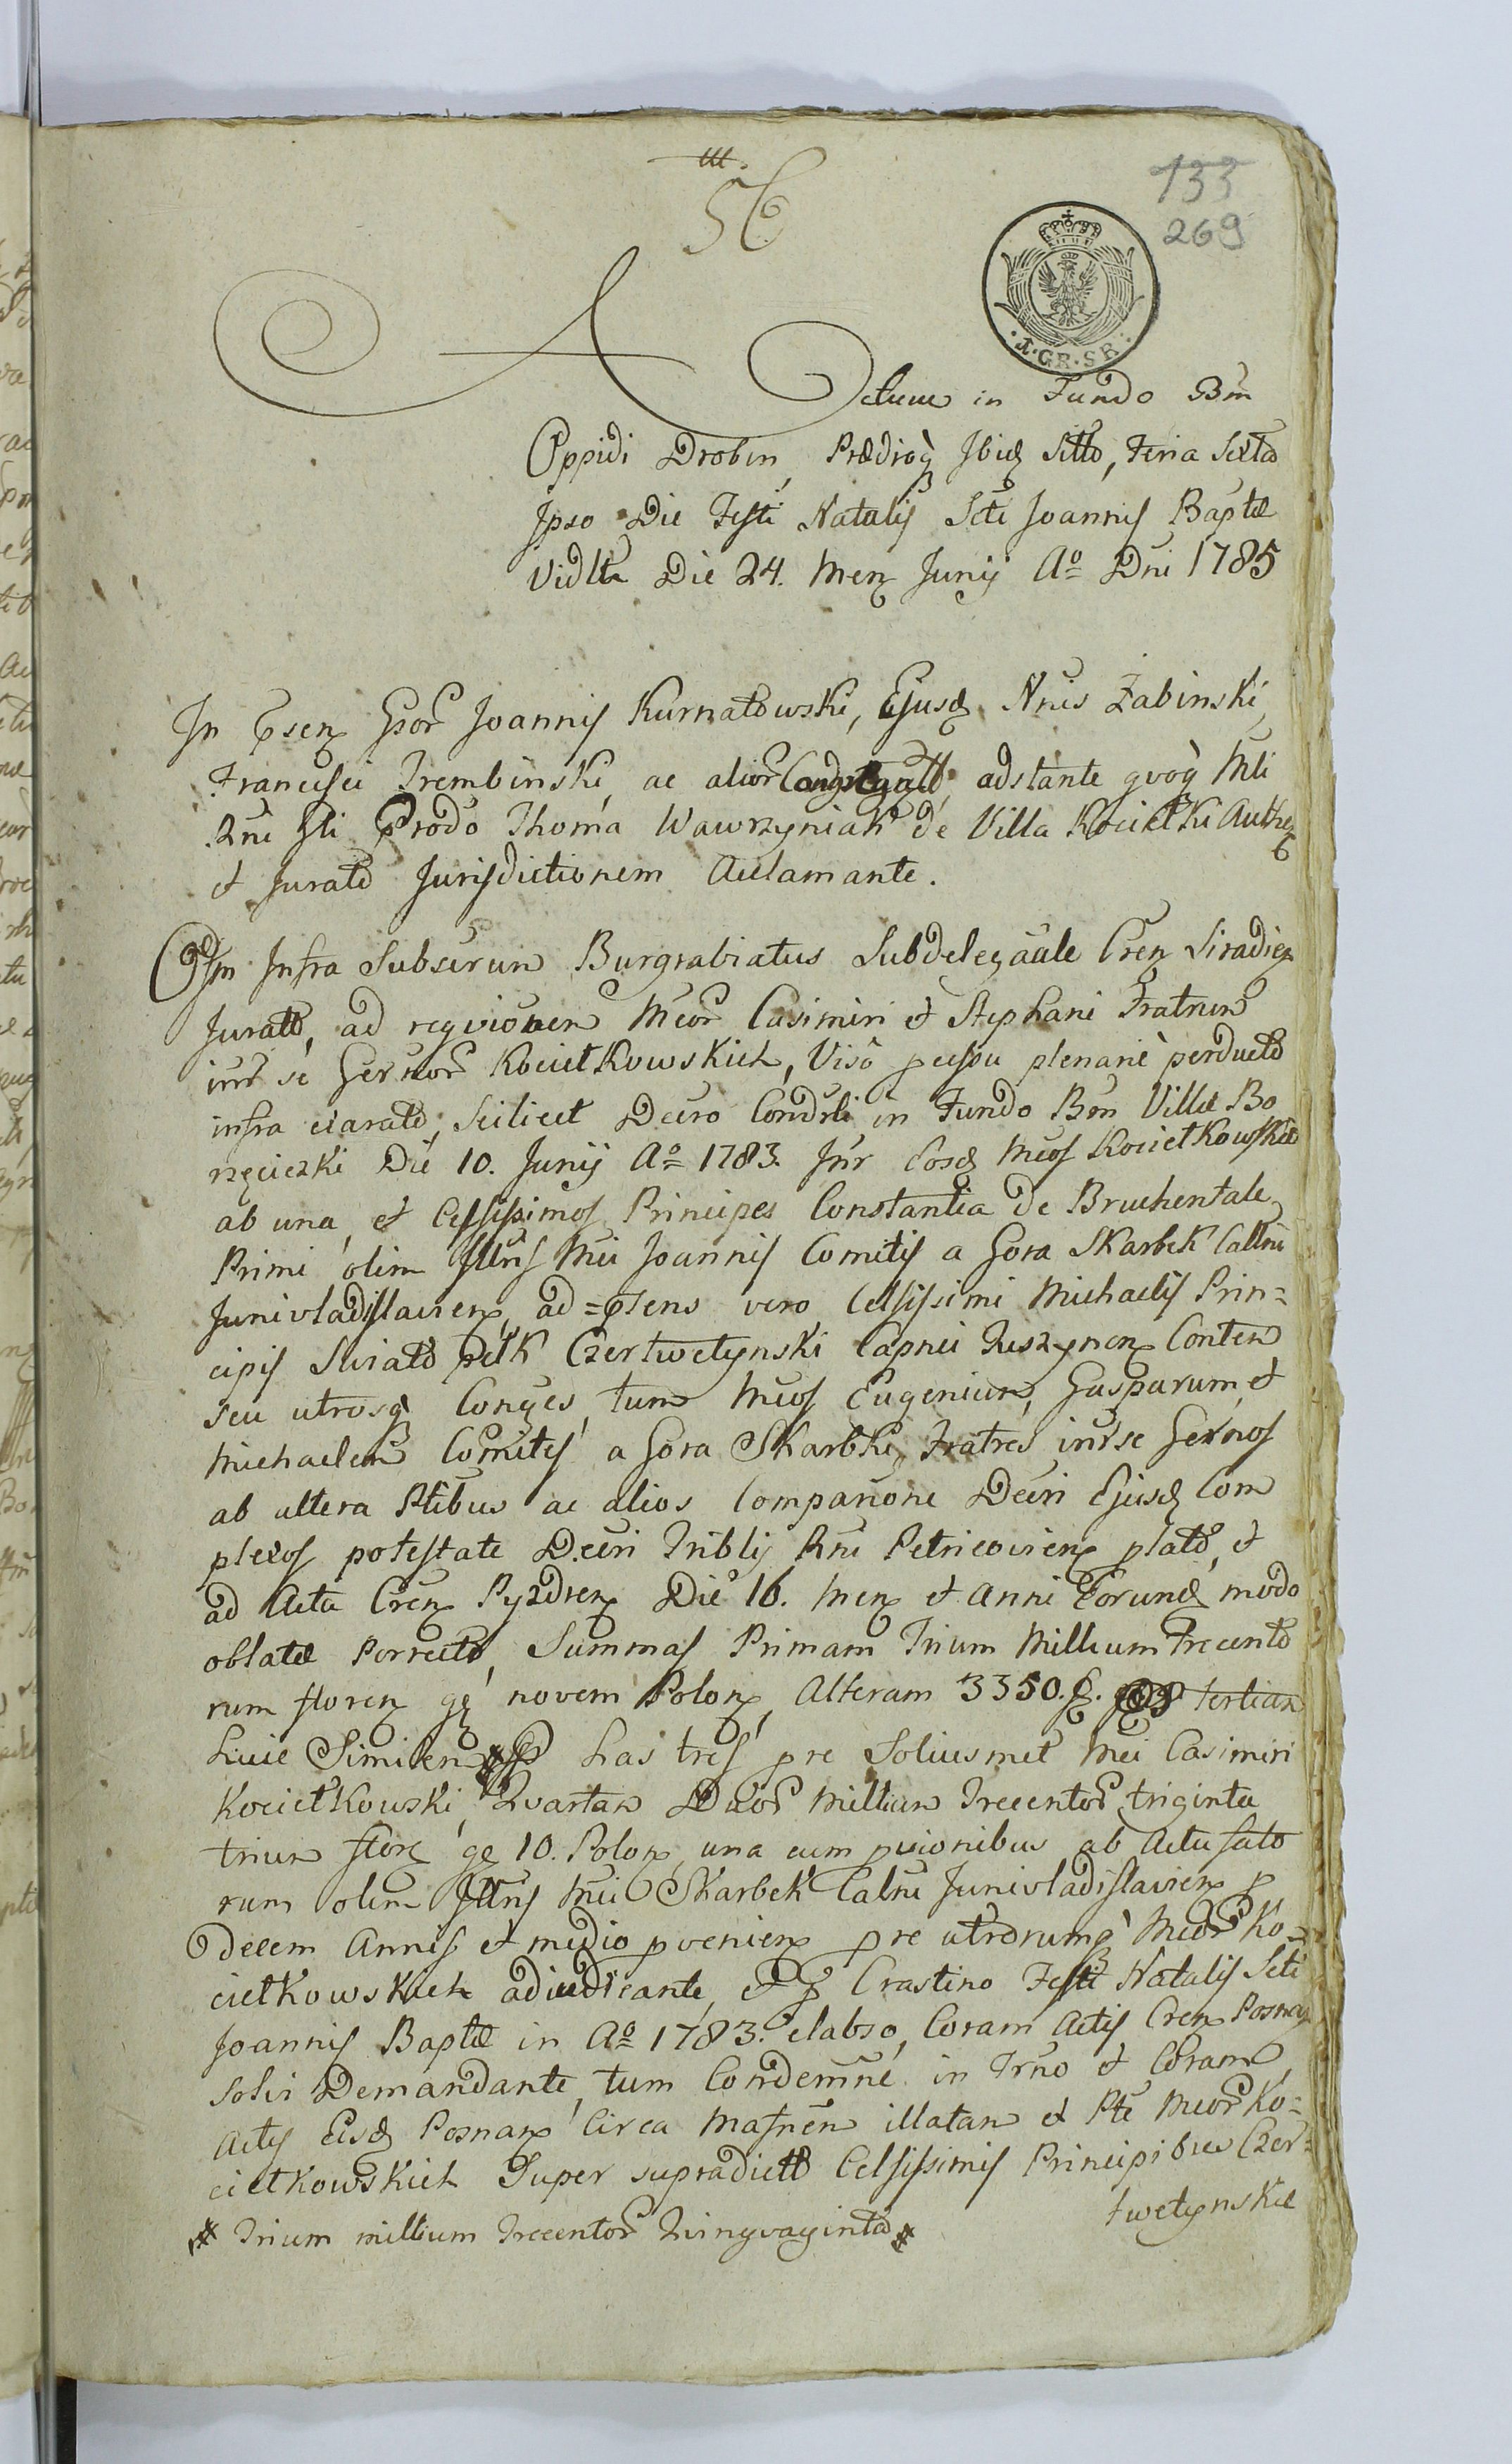 133
269
56
1.GR.SR.
Actum in Fundo Bm
Oppidi Drobin, Prædioq Ibid Sitto, Feria Sexta
Ipso Die Festi Natalis Scti Joannis Baptæ
Vidltt Die 24. Menz Junij Ao Dni 1785
In psenz Gsor Joannis Kurnatowski, Ejusd Nnis Zabinski,
Francisci Trembinski, ac alior adstante qvoq Mli
Rni Gli Provdo Thoma Wawrzyniak de Villa Kocietki Authen
et Jurato Jurisdictionem Aclamante.
Infra Subscrun Burgrabiatus Subdelegatule Cren Siradien
Juratt, ad reqvionem Mcor Casimiri et Stephani Fratrum
inr se Germor Kocietkowskich, Viso pcessu plenariè perducto
infra exarato, Scilicet Decro Condsli in Fundo Bm Villæ Bo
rzęciczki Die 10. Junij Ao 1783. Inr Eosd Mcos Kocietkowskie
ab una, et Celsissimos Principes Constantia de Bruchentale
Primi olim Illris Mci Joannis Comitis a Gora Skarbek Cattni
Junivladislavien, ad=psens vero Celsissimi Michaelis Prin=
cipis Swiato pelk Czertwetynski Capnei Ruszynen Conten
seu utrosq Conges, tum Mcos Eugenium, Gasparum, et
Michaelem Comites a Gora Skarbki, Fratres inr se Germos
ab altera Ptibus ac alios Comparione Decri Ejusd Com
plexos potestate Decri Triblis Rni Petricovien plato, et
ad Acta Cren Pyzdren Die 16. Menz et Anni Eorund modo
oblatæ Porrecto, Summas Primam Trium Millium Trecento
rum floren gę novem Polon, Alteram 3350. f. tertiam
huic Similem has tres pre Soliusmet Mci Casimiri
Kocietkowski, Qvartam Duor Millium Trecentor triginta
trium flor gę 10. Polon, una cum pvisionibus ab Actu sato
rum olim Illris Mci Skarbek Catni Junivladislavien p
decem Annis et medio pvenien pre utrorumq Mcor Ko=
cietkowskich adiudicante, et p Crastino Festi Natalis Scti
Joannis Baptæ in Ao 1783. elabso, Coram Actis Cren Posnan
Solvi Demandante, tum Condemne in Trno et Coram
Actis Eisd Posnan Circa Masnem illatam et Pte Mcor Ko=
cietkowskich Super supradictt Celsissimis Principibus Czer=
twetynskie
# Trium millium Trecentor Qvinqvaginta #